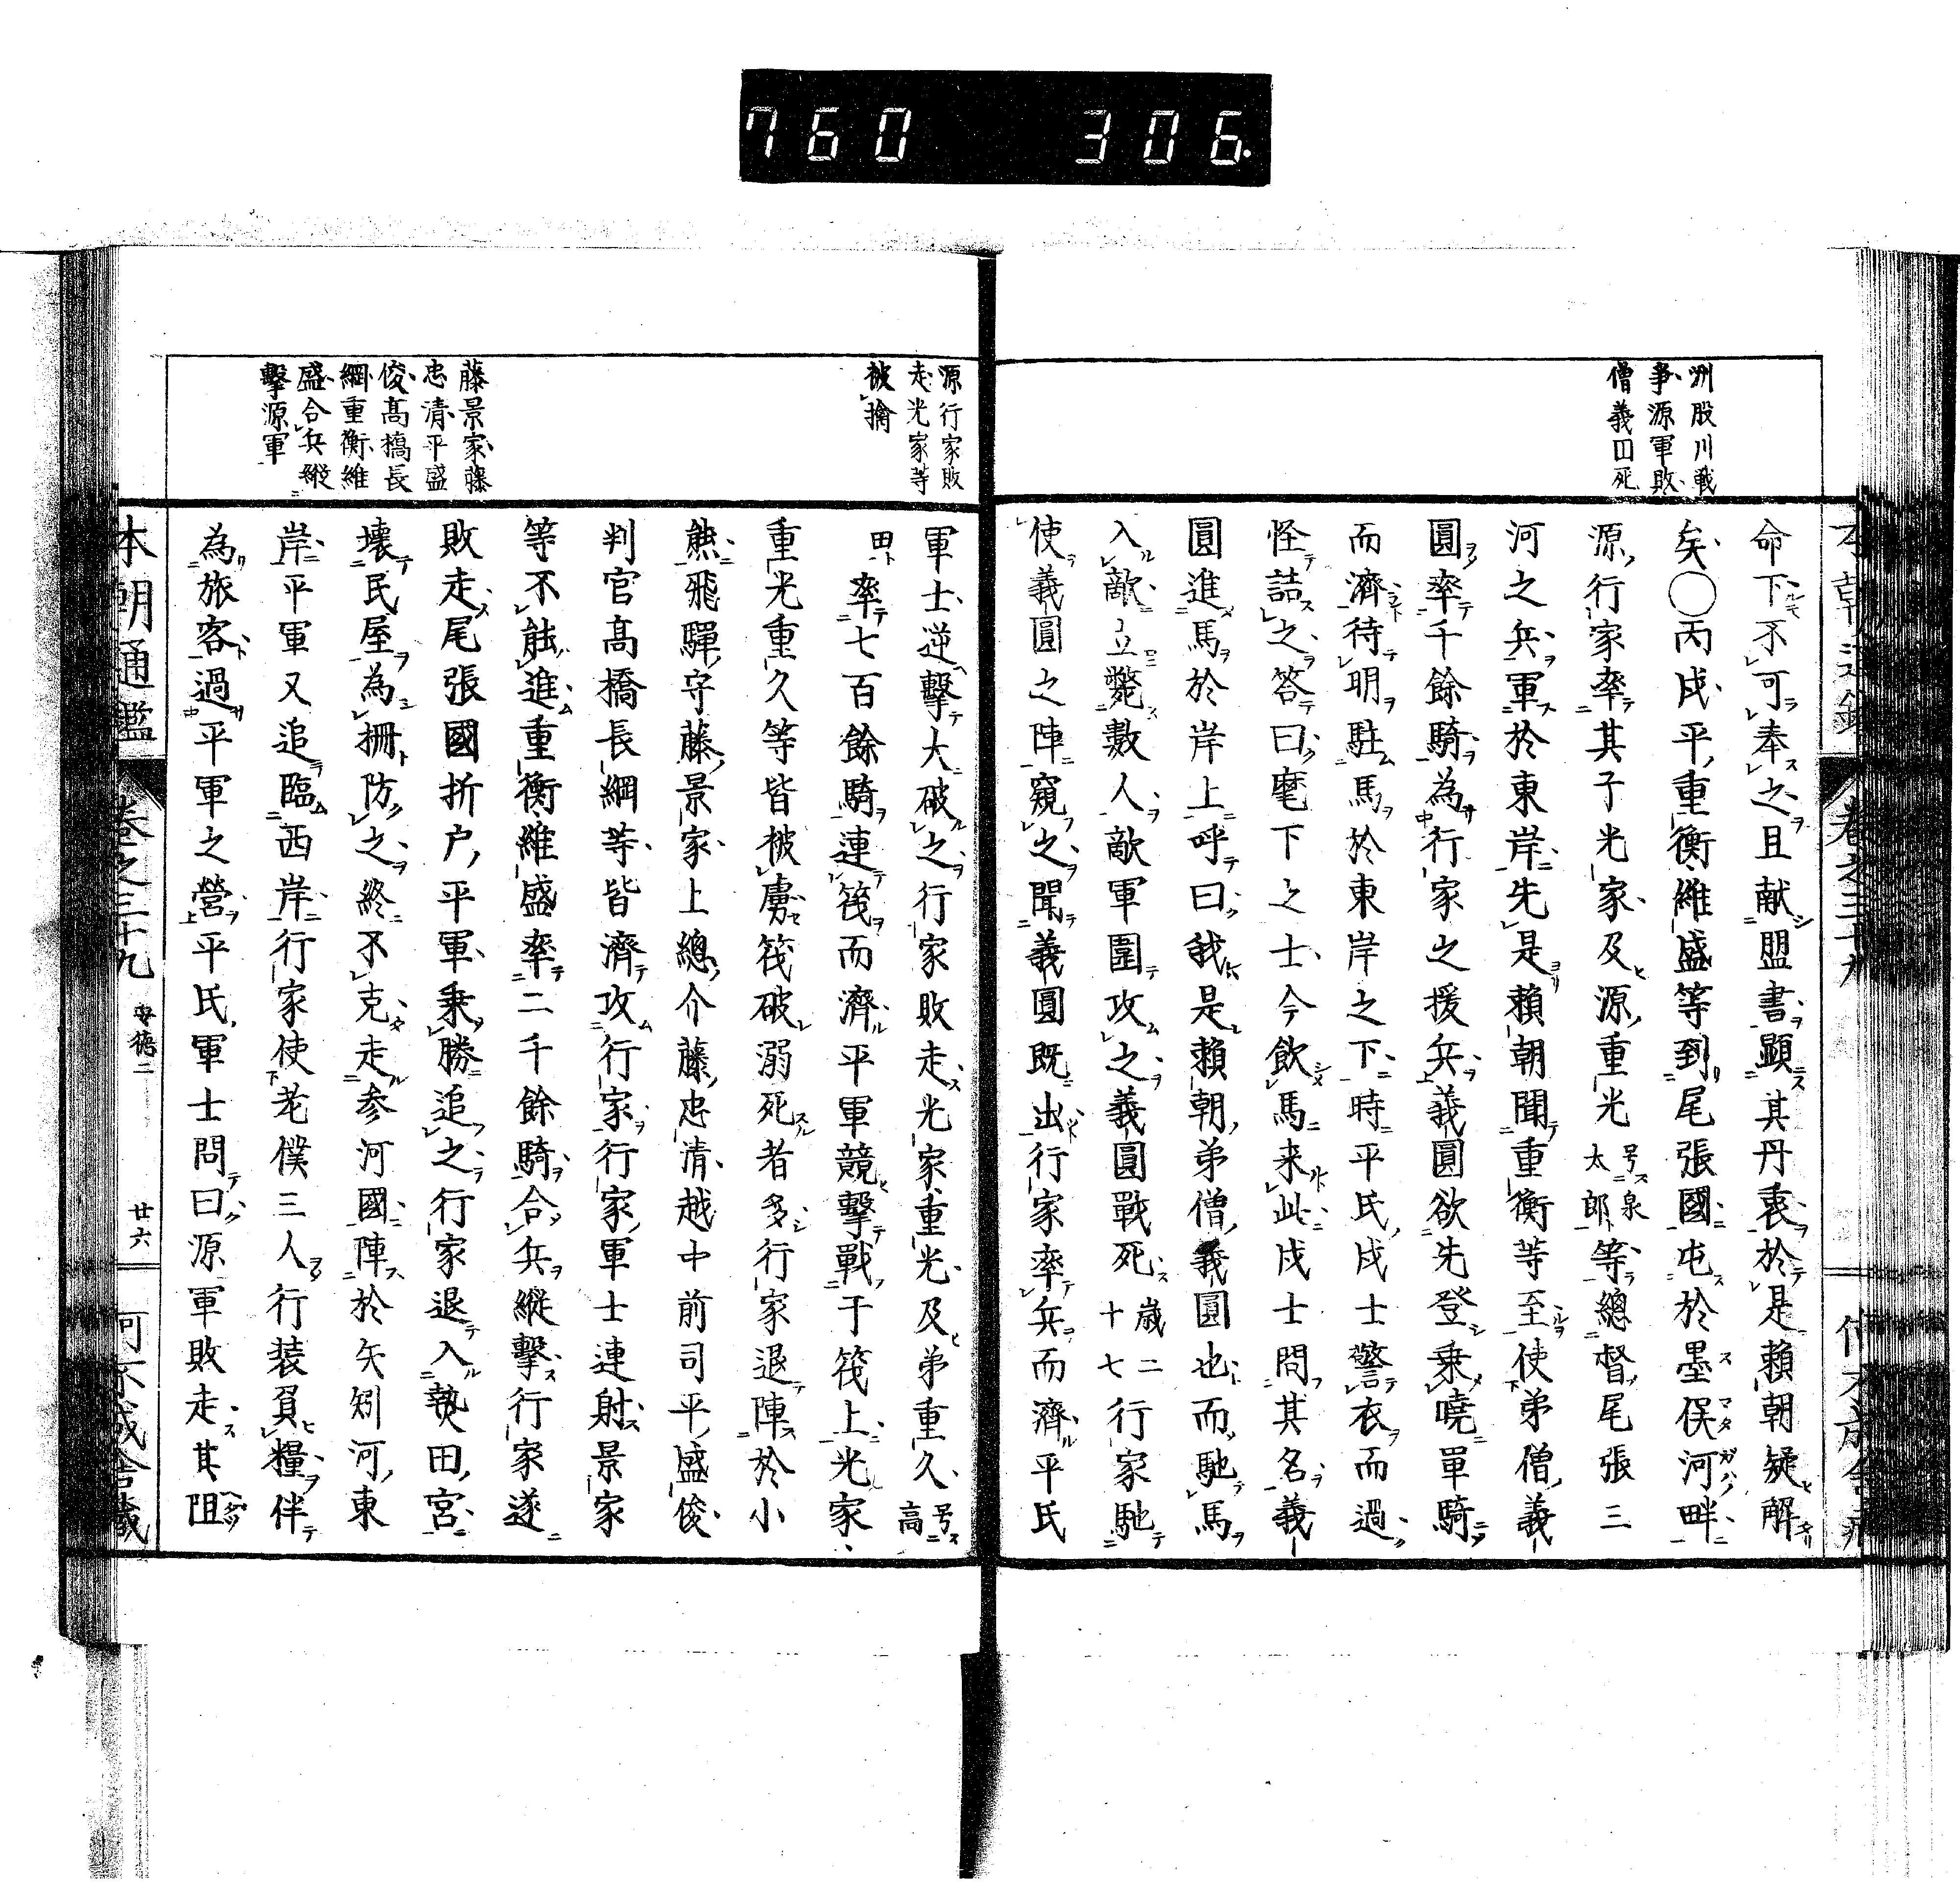 760 306.
洲股川戰
爭源軍敗
僧義円死
命下不可奉之且献盟書顕其丹衷於是頼朝疑解
矣〇丙戌平重衡維盛等到尾張國屯於墨俣河畔
源行家率其子光家及源重光号泉太郎等總督尾張三
河之兵軍於東岸先是頼朝聞重衡等至使弟僧義
圓率千餘騎為行家之援兵義圓欲先登乗曉單騎
而濟待明駐馬於東岸之下時平氏戍士警衣而過
怪詰之答曰麾下之士今飲馬来此戍士問其名義
圓進馬於岸上呼曰我是頼朝弟僧義圓也而馳馬
入敵立斃數人敵軍圍攻之義圓戰死歳二十七行家馳
使義圓之陣窺之聞義圓既出行家率兵而濟平氏
源行家敗
走光家等
被擒
藤景家藤
忠清平盛
俊髙橋長
綱重衡維
盛合兵縦
擊源軍
軍士逆擊大破之行家敗走光家重光及弟重久号高
田率七百餘騎連筏而濟平軍競擊戰于筏上光家
重光重久等皆被虜筏破溺死者多行家退陣於小
熊飛騨守藤景家上總介藤忠清越中前司平盛俊
判官髙橋長綱等皆濟攻行家行家軍士連射景家
等不能進重衡維盛率二千餘騎合兵縱擊行家遂
敗走尾張國折戸平軍乗勝追之行家退入熱田宮
壊民屋為柵防之終不克走参河國陣於矢矧河東
岸平軍又追臨西岸行家使老僕三人行装負糧伴
為旅客過平軍之營平氏軍士問曰源軍敗走其阻
本朝通鑑 卷之三十九 安徳二 廿六